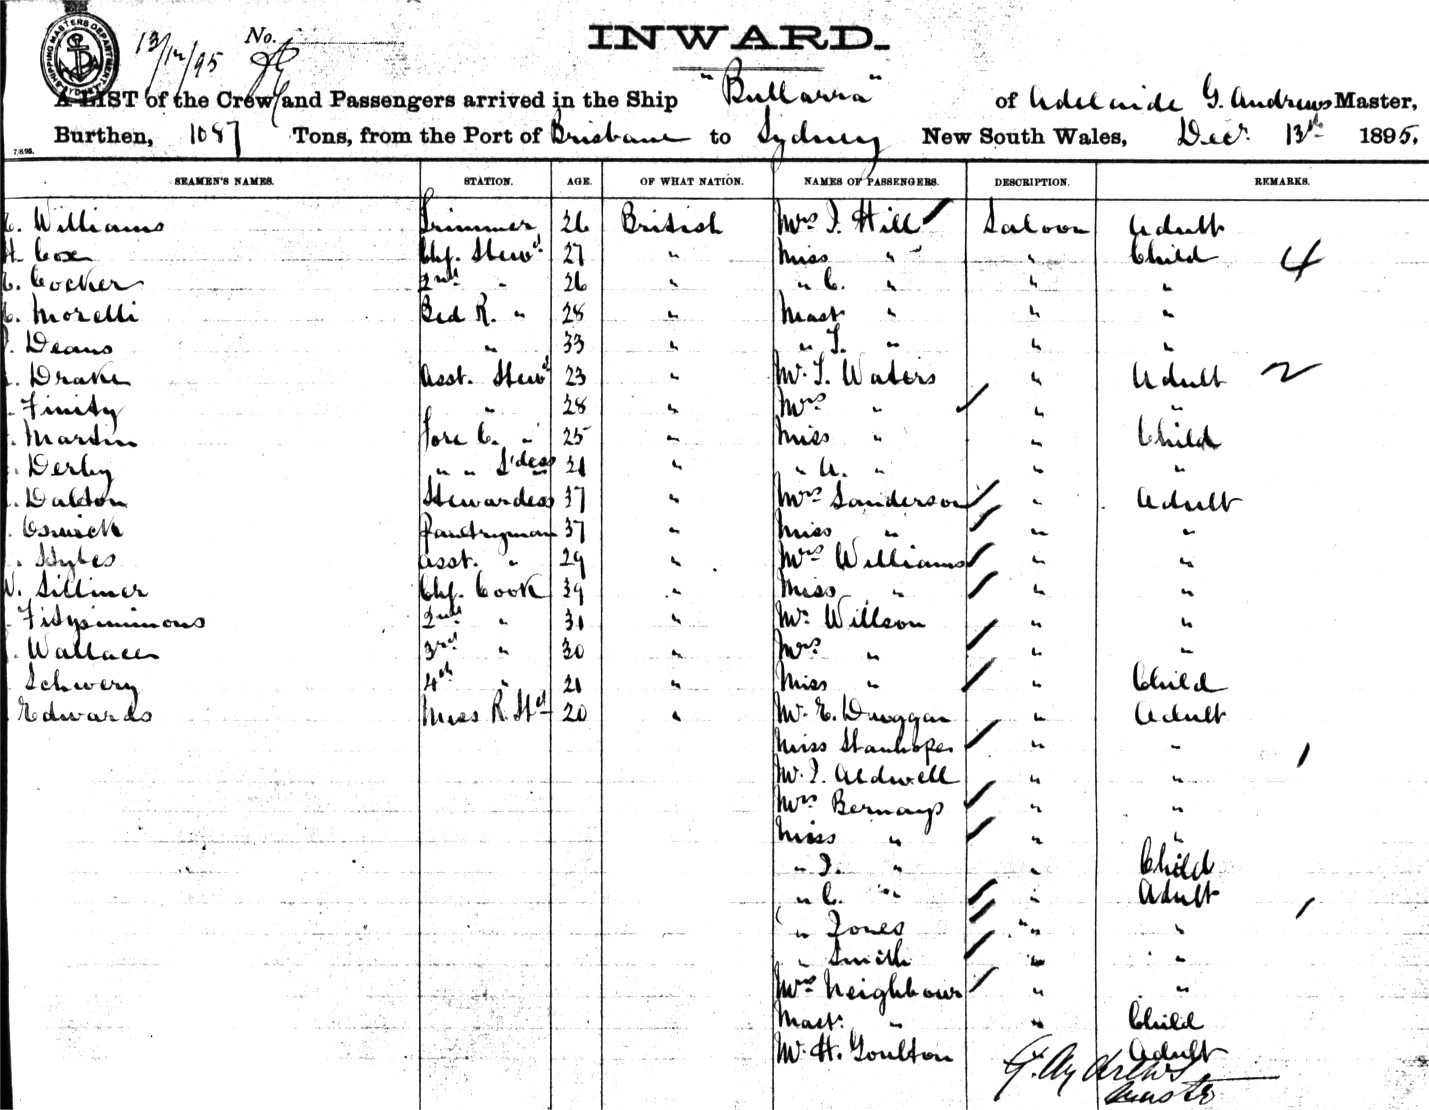 SHIPPING MASTERS DEPARTMENT SYDNEY
13/12/95 No.
INWARD.
A LIST of the Crew and Passengers arrived in the Ship "Bullarra" of Adelaide G. Andrews Master,
Burthen, 1087 Tons, from the Port of Brisbane to Sydney New South Wales, Decr. 13th 1895.
7/8/95.
SEAMEN'S NAMES. STATION. AGE. OF WHAT NATION. NAMES OF PASSENGERS. DESCRIPTION. REMARKS.
Williams Trimmer 26 British Mrs J. Hill Saloon Adult
Cox Chf. Stewd 27 " Miss " " Child 4
Cocker 2nd " 26 " " C. " " "
Morelli Bed R. " 28 " Mast " " "
Deans " 33 " " T. " " "
Drake Asst. Stewd 23 " Mr. T. Waters " Adult 2
Finity " 28 " Mrs " " "
Martin Fore C. " 25 " Miss " " Child
Derby " " S'dess 31 " " A. " " "
Dalton Stewardess 37 " Mrs Sanderson " Adult
Pantryman 37 " Miss " " "
Hybes Asst. " 29 " Mrs Williams " "
Chf. Cook 39 " Miss " " "
Fitzsimmons 2nd " 31 " Mr. Willson " "
Wallace 3rd " 30 " Mrs " " "
Schwery 4th " 21 " Miss " " Child
Edwards Mess R. Std 20 " Mr. E. Duggan " Adult
Miss Stanhope " " 1
Mr. J. Aldwell " "
Mrs Bernays " "
Miss " " "
" J. " " Child
" C. " " Adult
" Jones " " 1
" Smith " "
Mrs Neighbour " "
Mast. " " Child
Mr. H. Goulton Adult
G. Andrews
Master